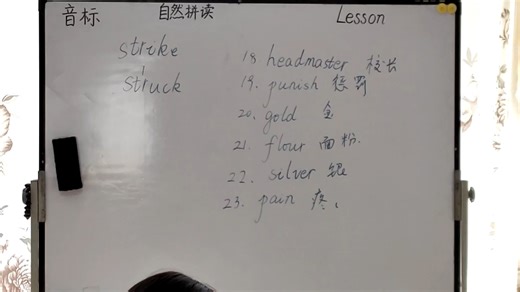 音标 自然拼读 Lesson
strike
struck
18. headmaster 校长
19. punish 惩罚
20. gold 金
21. flour 面粉.
22. silver 银
23. pain 疼.